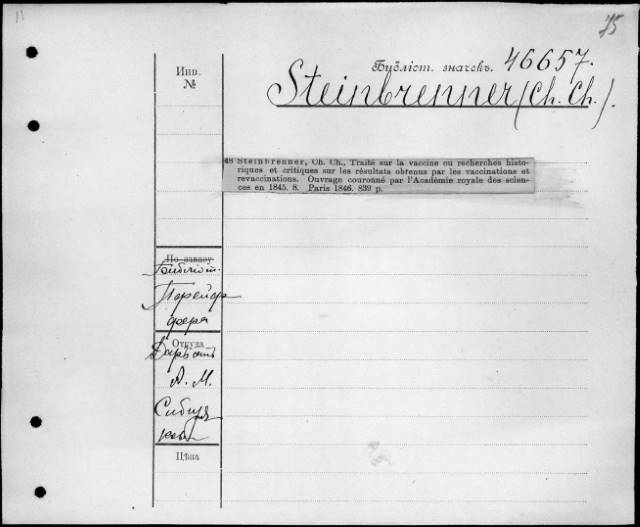 11
75
Инв.
№
Бубліот. значекъ. 46657.
Steinbrenner (Ch. Ch.).
48 Steinbrenner, Ch. Ch., Traité sur la vaccine ou recherches histo-
riques et critiques sur les résultats obtenus par les vaccinations et
revaccinations. Ouvrage couronné par l'Académie royale des scien-
ces en 1845. 8. Paris 1846. 839 p.
По заказу
Библіот.
Порейфе
фера
Откуда
Даръ отъ
А. М.
Сибиря
кова
Цѣна